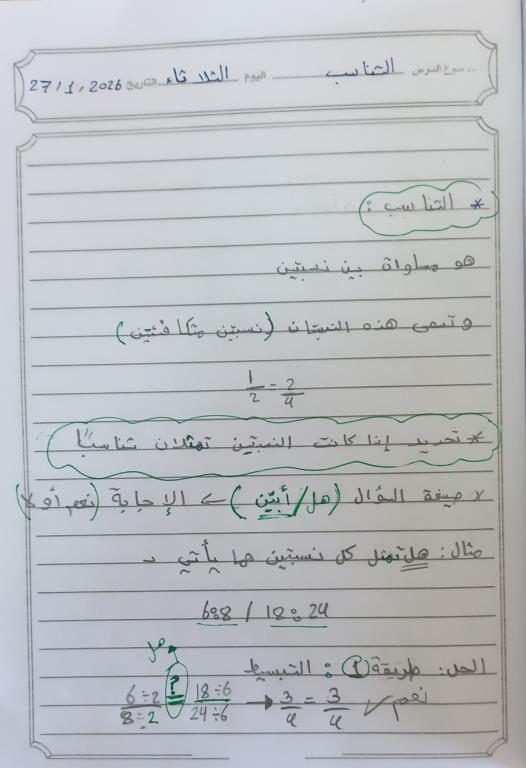 موضوع الدرس التناسب اليوم الثلاثاء التاريخ 27/1/2026
* التناسب :
هو مساواة بين نسبتين
وتسمى هذه النسبتان (نسبتين متكافئتين)
1/2 = 2/4
* تحديد إذا كانت النسبتين تمثلان تناسبًا
× صيغة السؤال (هل/أبيّن) > الإجابة (نعم أو لا)
مثال: هل تمثل كل نسبتين مما يأتي
6:8 / 18:24
الحل: طريقة 1 : التبسيط
هل
6÷2/8÷2 =? 18÷6/24÷6 → 3/4 = 3/4 نعم ✓